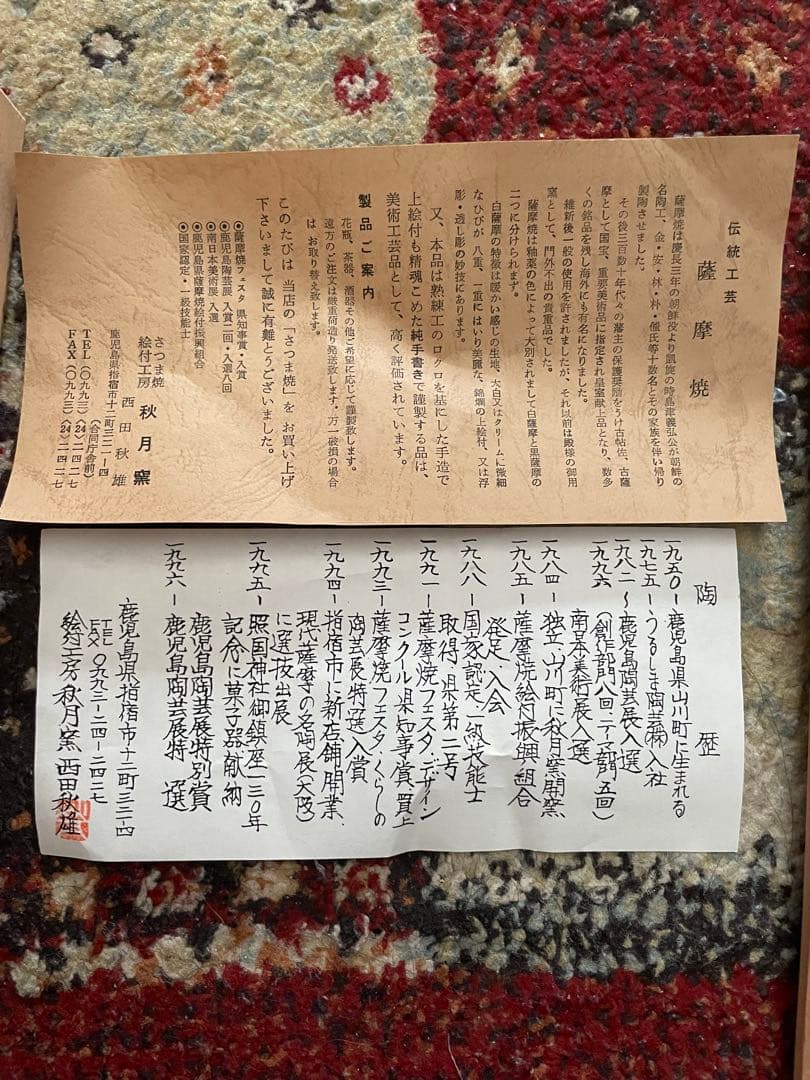 伝統工芸
薩摩焼
薩摩焼は慶長三年の朝鮮役より凱旋の時島津義弘公が朝鮮の
名陶工、金・安・林・朴・催氏等十数名とその家族を伴い帰り
製陶させました。
その後三百数十年代々の藩主の保護奨励をうけ古帖佐、古薩
摩として国宝、重要美術品に指定され皇室献上品となり、数多
くの銘品を残し海外にも有名になりました。
維新後一般の使用を許されましたが、それ以前は殿様の御用
窯として、門外不出の貴重品でした。
薩摩焼は釉薬の色によって大別されまして白薩摩と黒薩摩の
二つに分けられます。
白薩摩の特徴は暖かい感じの生地、大白又はクリームに微細
なひびが、八重、一重にはいり美麗な、錦爛の上絵付、又は浮
彫・透し彫の妙技にあります。
又、本品は熟練工のロクロを基にした手造で
上絵付も精魂こめた純手書きで謹製する品は、
美術工芸品として、高く評価されています。
製品ご案内
花瓶、茶器、酒器その他ご希望に応じて謹製致します。
遠方のご注文は厳重荷造り発送致します。万一破損の場合
は お取り替え致します。
このたびは 当店の「さつま焼」をお買い上げ
下さいまして誠に有難とうございました。
◉薩摩焼フェスタ 県知事賞・入賞
◉鹿児島陶芸展 入賞二回・入選八回
◉南日本美術展 入選
◉鹿児島県薩摩焼絵付振興組合
◉国家認定・一級技能士
さつま焼
絵付工房 秋月窯
西田秋雄
鹿児島県指宿市十二町三三一-四
(合同庁舎前)
TEL(〇九九三)(24)二四二七
FAX(〇九九三)(24)二四二七
陶歴
一九五〇-鹿児島県山川町に生まれる
一九七五-うるしま陶芸㈱入社
一九八二~鹿児島陶芸展入選
一九九六 (創作部門八回・テーマ部門五回)
南日本美術展入選
一九八四-独立、山川町に秋月窯開窯
一九八五-薩摩焼絵付振興組合
発足、入会
一九八八-国家認定一級技能士
取得・県第二号
一九九一-薩摩焼フェスタ・デザイン
コンクール県知事賞買上
一九九三-薩摩焼フェスタ・くらしの
陶芸展特選入賞
一九九四-指宿市に新店舗開業、
現代薩摩の名陶展(大阪)
に選抜出展
一九九五-照国神社御鎮座一三〇年
記念に菓子器献納
鹿児島陶芸展特別賞
一九九六-鹿児島陶芸展特選
鹿児島県指宿市十二町三三一-四
TEL
FAX 〇九九三-二四-二四二七
絵付工房 秋月窯 西田秋雄